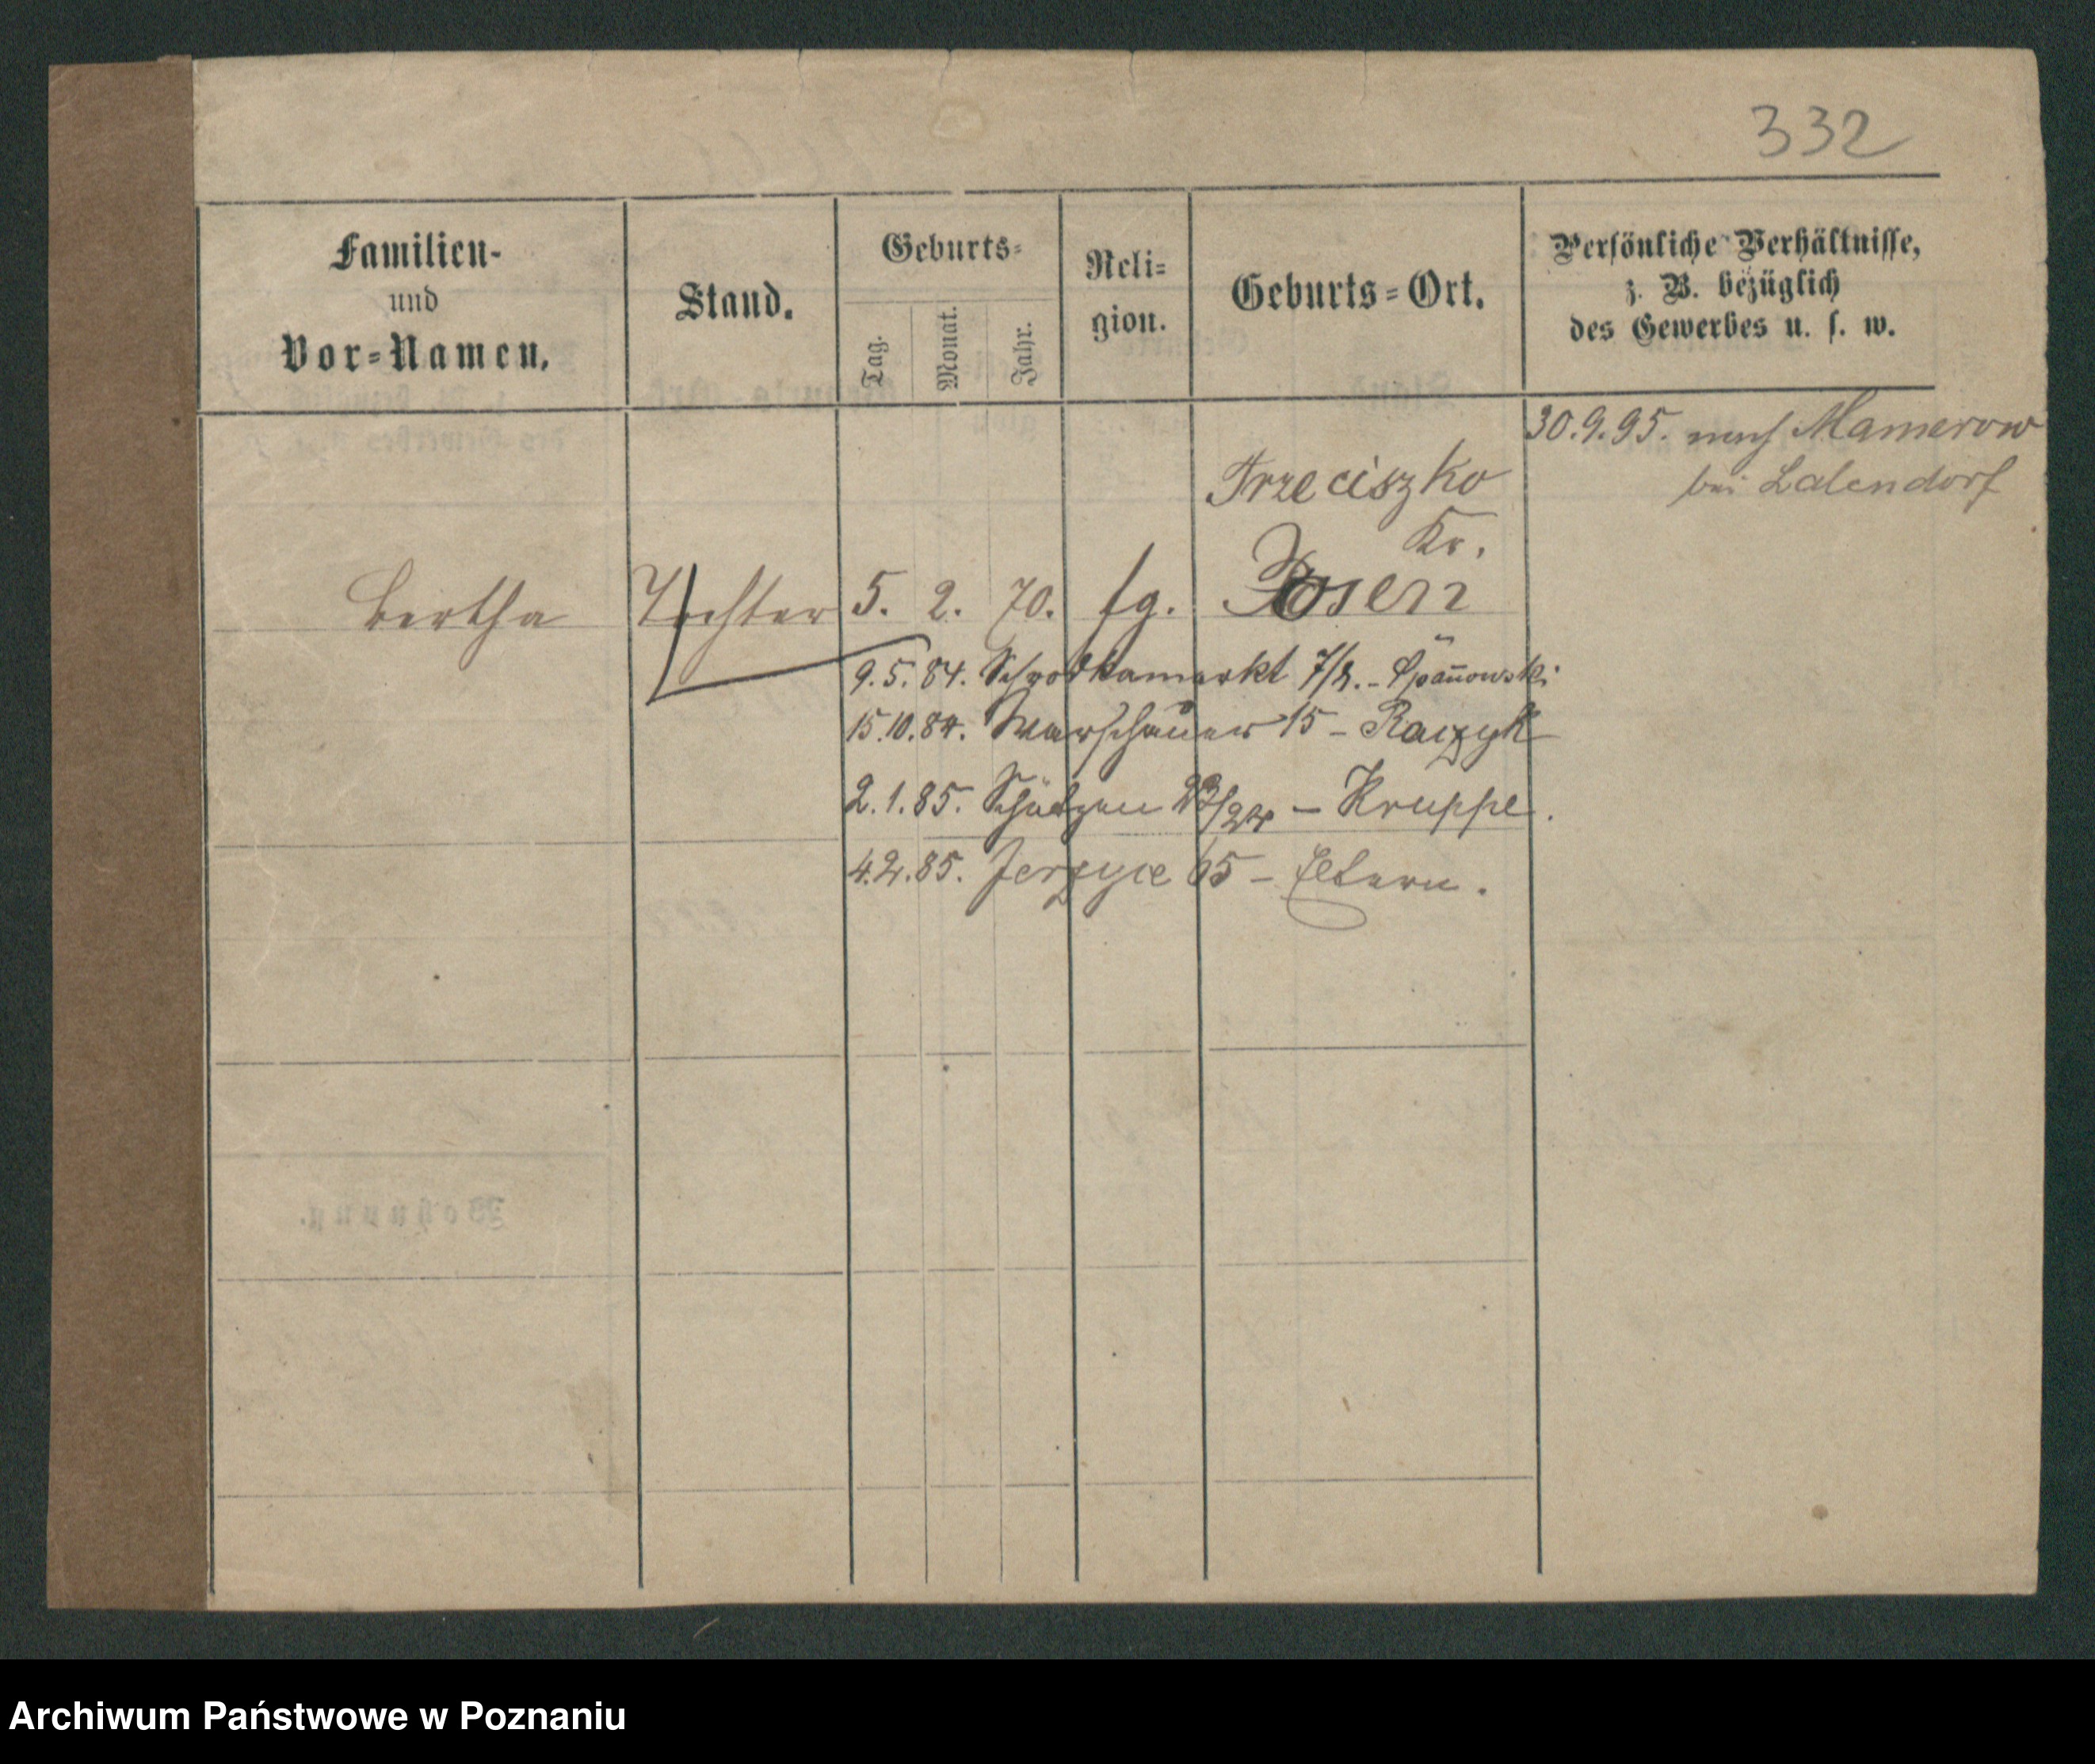 332
Familien-
und
Vor-Namen.
Stand.
Geburts-
Tag.
Monat.
Jahr.
Reli-
gion.
Geburts-Ort.
Persönliche Verhältnisse,
z. B. bezüglich
des Gewerbes u. s. w.
30.9.95. nach Mamerow
bei Lalendorf
Trzeciszko
Kr.
Bertha Tochter 5. 2. 70. Posen
9.5.84. Schrodkamarkt 7/8. -
15.10.84. Warschauer 15 - Raczyk
2.1.85. Schützen 23/24 - Kruppe.
4.2.85. Jerzyce 65 - Eltern.
Wohnung.
Archiwum Państwowe w Poznaniu